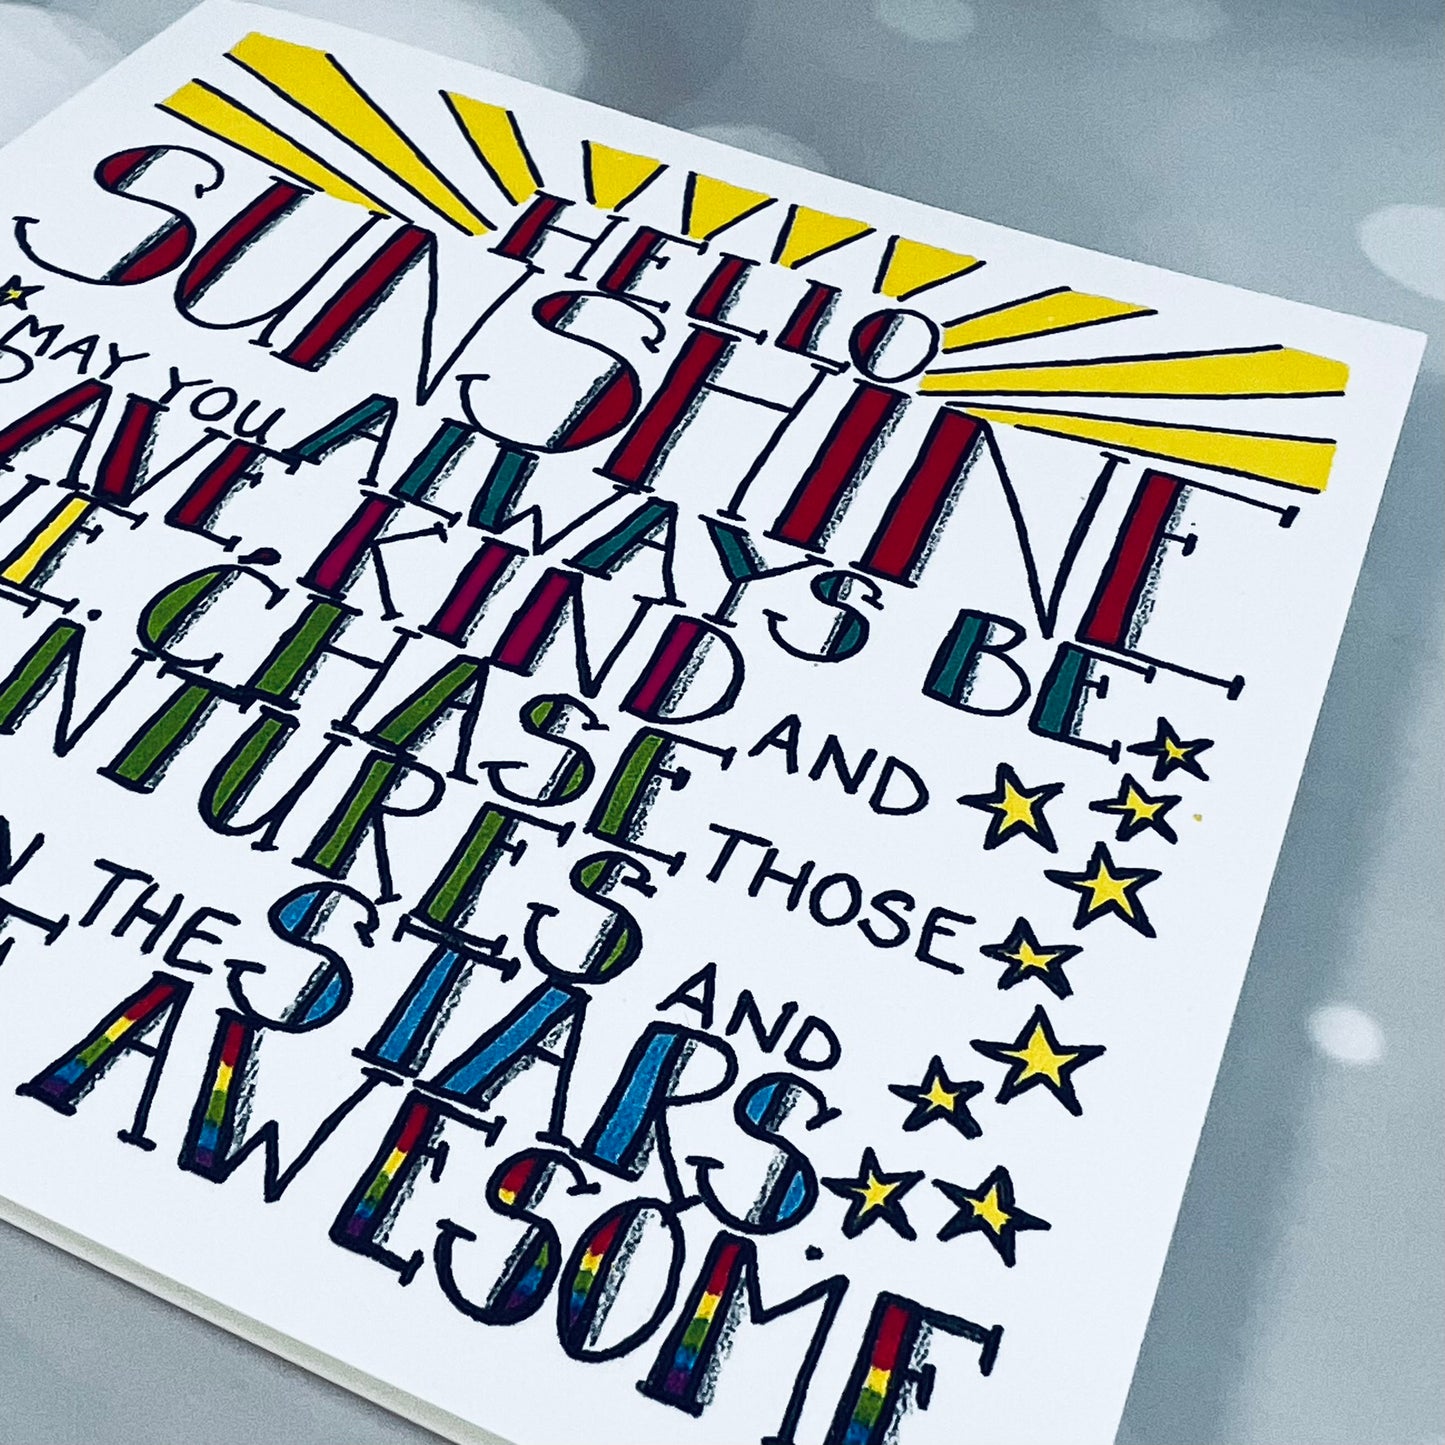 HELLO
SUNSHINE
MAY YOU ALWAYS BE
AVE, KIND AND
E. CHASE THOSE
NTURES AND
THE STARS.
AWESOME